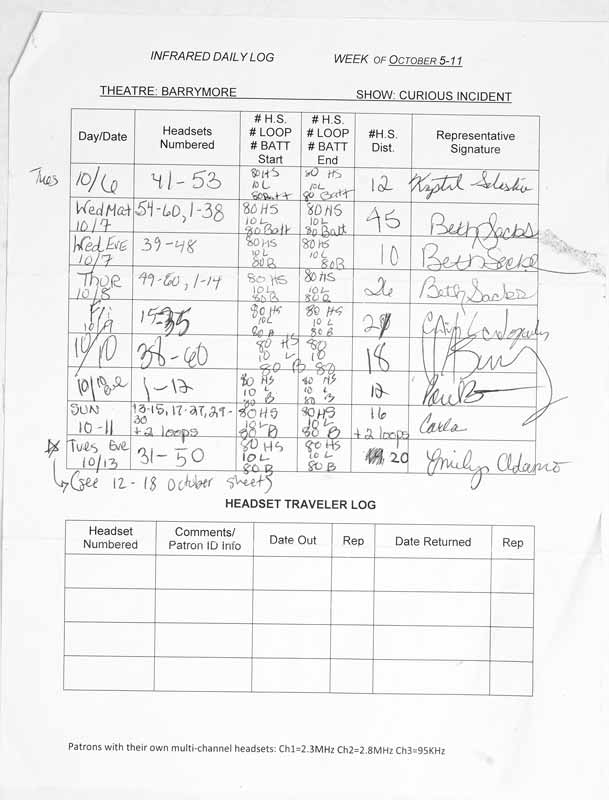 INFRARED DAILY LOG WEEK OF OCTOBER 5-11
THEATRE: BARRYMORE SHOW: CURIOUS INCIDENT
Day/Date Headsets Numbered # H.S. # LOOP # BATT Start # H.S. # LOOP # BATT End #H.S. Dist. Representative Signature
Tues 10/6 41-53 80 HS 10 L 80 Batt 80 HS 10 L 80 Batt 12 Krystal
Wed Mat 10/7 54-60, 1-38 80 HS 10 L 80 Batt 80 HS 10 L 80 Batt 45 Beth Sacks
Wed Eve 10/7 39-48 80 HS 10 L 80 B 80 HS 10 L 80 B 10 Beth Sacks
Thur 10/8 49-60, 1-14 80 HS 10 L 80 B 80 HS 10 L 80 B 26 Beth Sacks
Fri 10/9 15-35 80 HS 10 L 80 B 80 HS 10 L 80 B
10/10 38-60 80 HS 10 L 80 B 80 10 80 18
10/10 Eve 1-12 80 HS 10 L 80 B 80 HS 10 L 80 B 12
SUN 10-11 13-15, 17-27, 29-30 +2 loops 80 HS 10 L 80 B 80 HS 10 L 80 B 16 +2 loops Carla
Tues Eve 10/13 31-50 80 HS 10 L 80 B 80 HS 10 L 80 B 20 Emily Adamo
(see 12-18 October sheet)
HEADSET TRAVELER LOG
Headset Numbered Comments/ Patron ID Info Date Out Rep Date Returned Rep
Patrons with their own multi-channel headsets: Ch1=2.3MHz Ch2=2.8MHz Ch3=95KHz